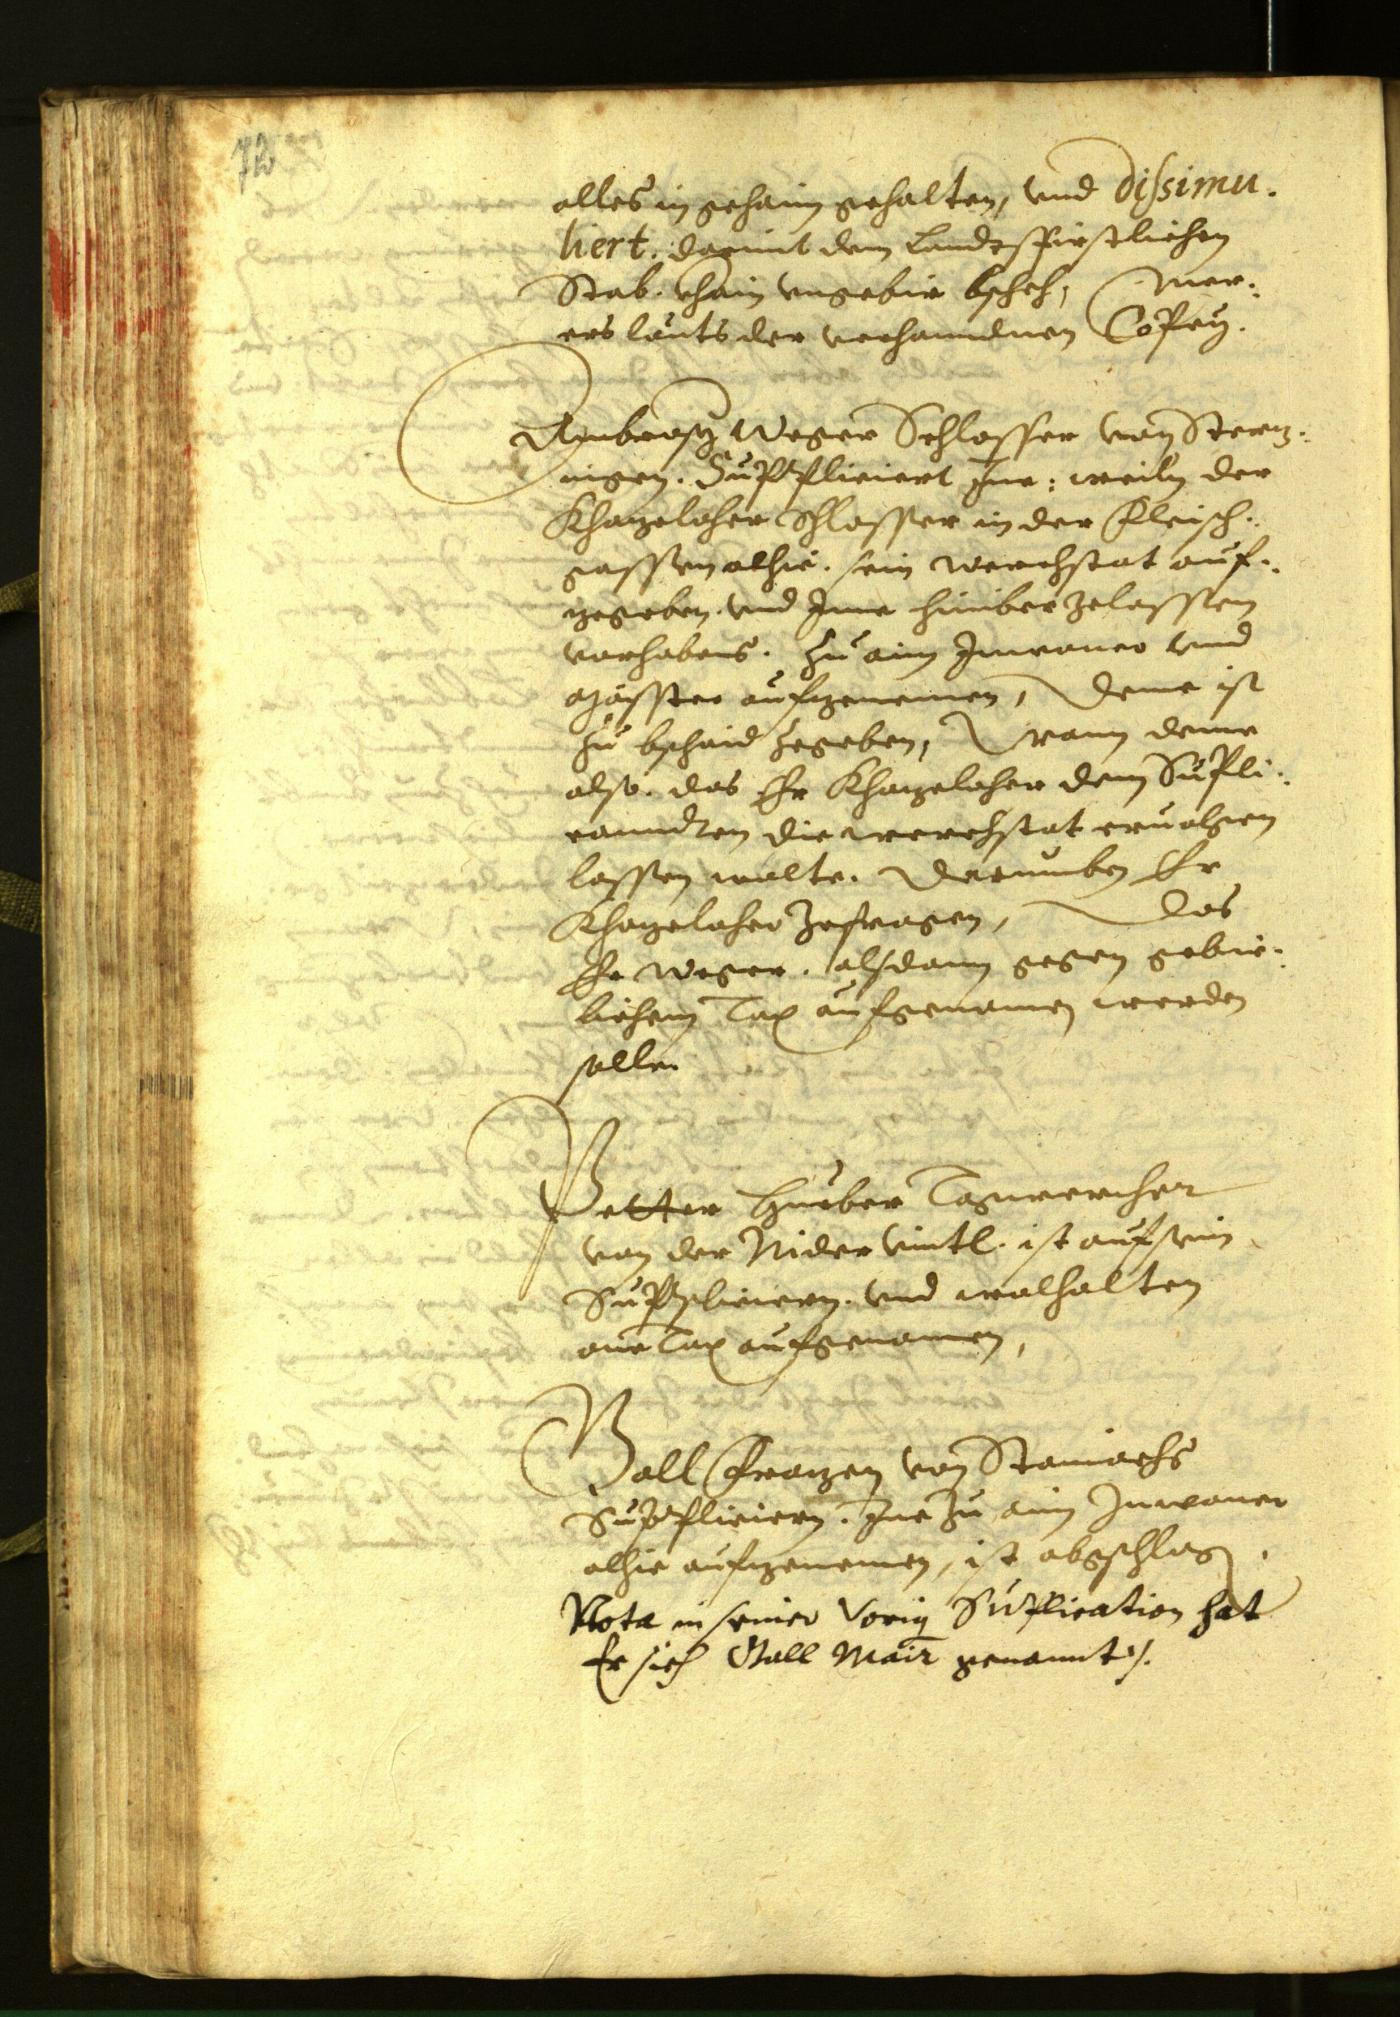 72
alles in gehaim gehalten, vnd dissimu.
liert. damit dem Landsfürstlichen
Stab. khain vngebür bscheh, mer:
ers lauts der verhanndnen Copey.
Ambrosy Weger Schlosser von Stertz:
ingen. Suppliciert Ine: weiln der
Khatzelaher Schlosser in der Fleisch:
gassen alhie. sein werchstat auf:
zegeben. vnd Ime hinüber zelassen
vorhabens. Zu aim Inwoner vnd
Maister aufzenemen, Deme ist
zu bschaid zegeben, Wann deme
also. das Er Khatzelaher dem Supli:
canndten die werchstat ervolgen
lassen wolte. Darumben Er
Khatzelaher zefragen, Das
Er Weger. alsdann gegen gebür:
lichem Tax aufgenomen werden
solle.
Petter Hueber Tagwercher
von der Nider Vintl. ist auf sein
Supplicieren. vnd wolhalten
one Tax aufgenomen,
Gall Frantzen von Stainachs
Supplicieren. Ine zu aim Inwoner
alhie aufzenemen, ist abgschlagen.
Nota in seiner vorig Suplication hat
Er sich Gall Mair genannt.